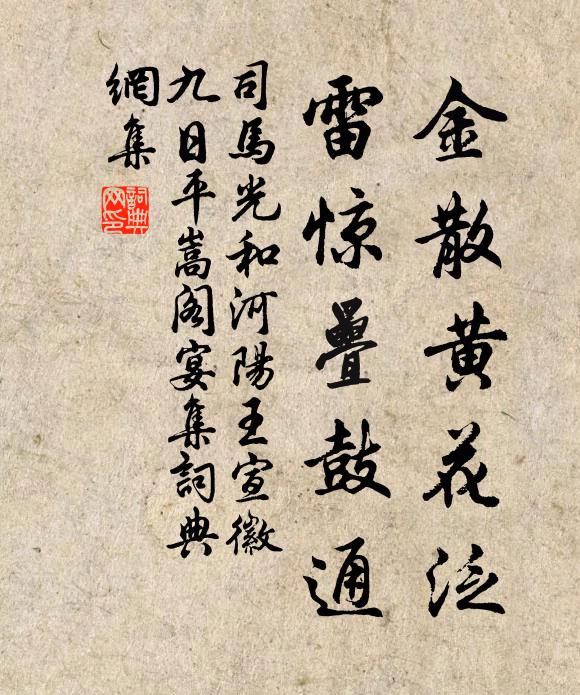 金散黄花泛
雷惊疊鼓通
司馬光和河陽王宣徽
九日平嵩阁宴集詞典
網集
詞典
网印